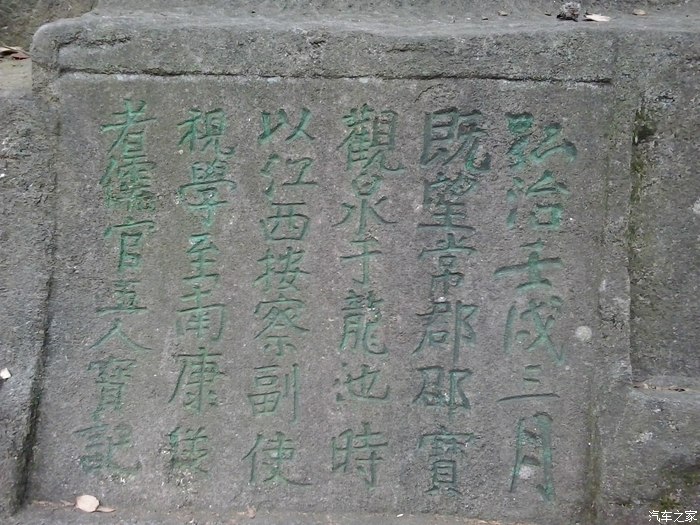 弘治壬戌三月
既望常郡邵寶
觀泉于龍池時
以江西按察副使
視學至南康從
者儒官五人寶記
汽车之家